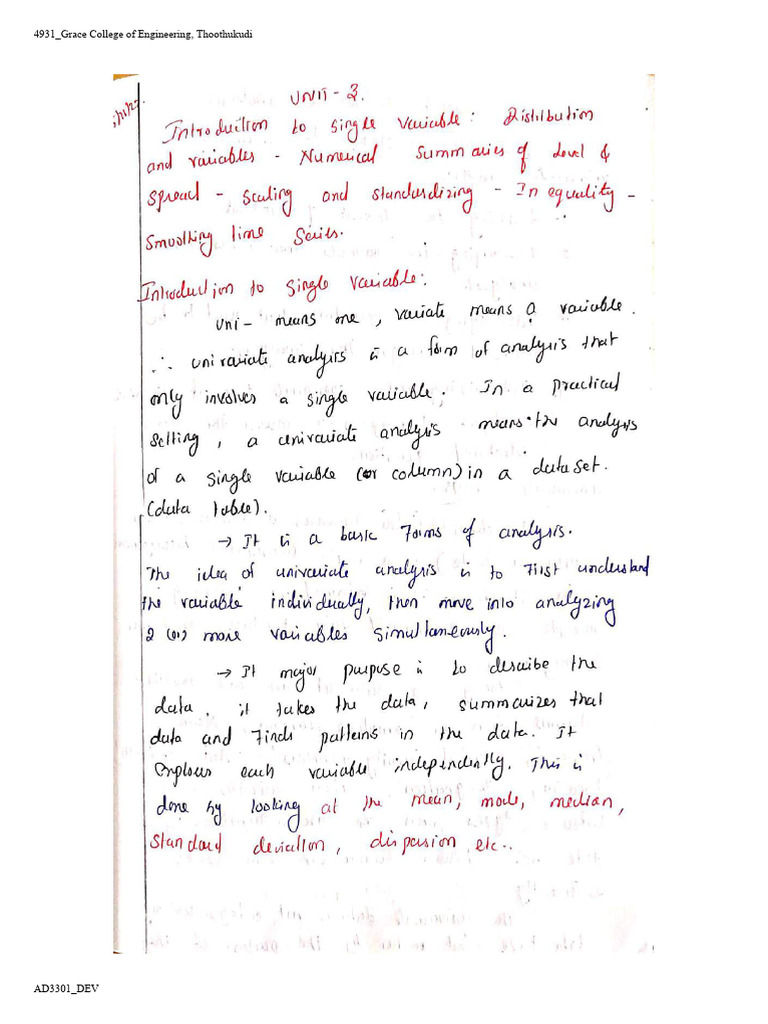 4931_Grace College of Engineering, Thoothukudi
UNIT - 3.
Introduction to single variable: Distribution
and variables - Numerical Summaries of Level &
Spread - Scaling and standardizing - Inequality -
Smoothing time Series.
Introduction to single variable:
Uni- means one, variate means a variable.
∴ univariate analysis is a form of analysis that
only involves a single variable. In a practical
setting, a univariate analysis means the analysis
of a single variable (or column) in a dataset.
(data table).
→ It is a basic Forms of analysis.
The idea of univariate analysis is to First understand
the variable individually, then move into analyzing
2 (or) more variables simultaneously.
→ It major purpose is to describe the
data. it takes the data, summarizes that
data and Finds patterns in the data. It
Explores each variable independently. This is
done by looking at the mean, mode, median,
Standard deviation, dispersion etc..
AD3301_DEV